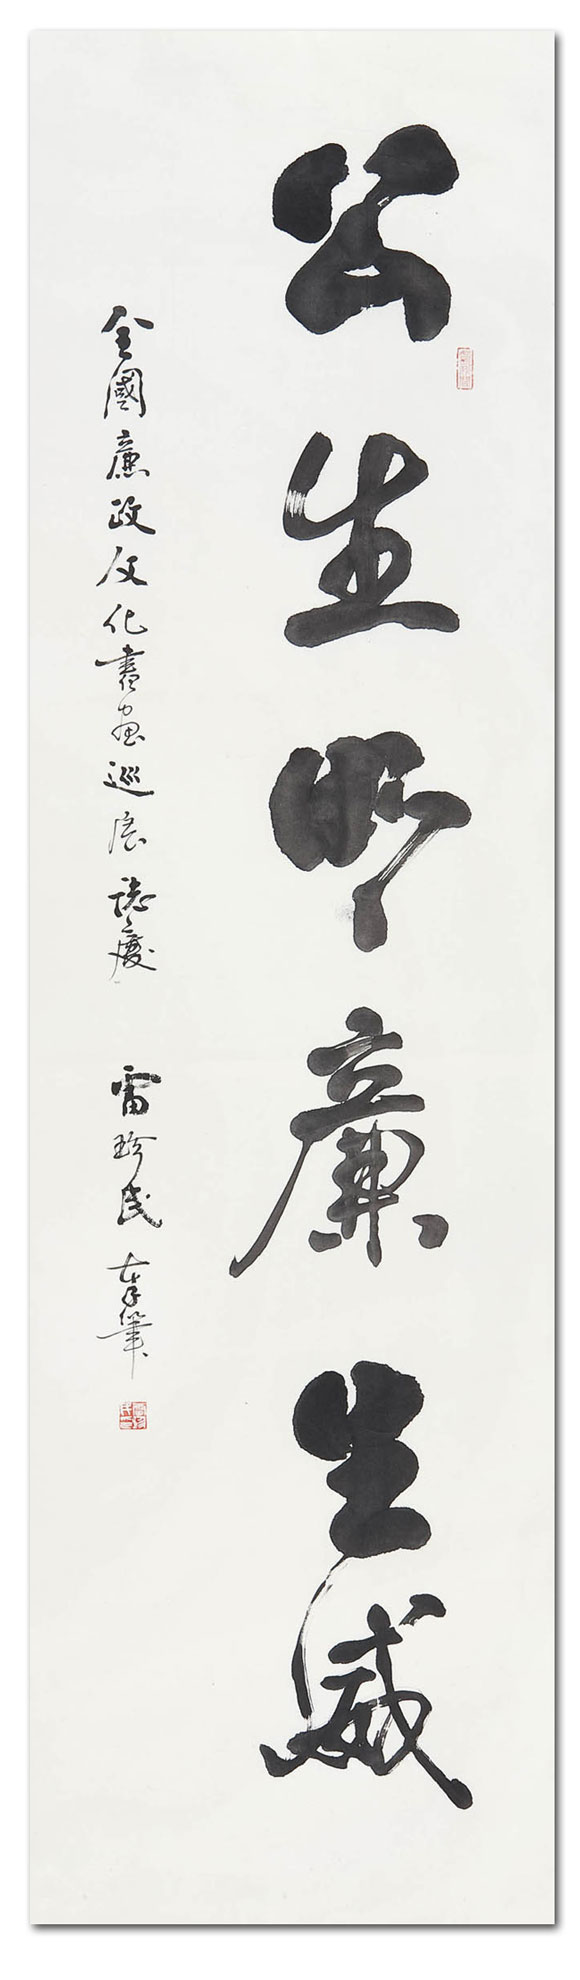 公生明廉生威
全國廉政文化書畫巡展誌慶
雷珍民奉筆